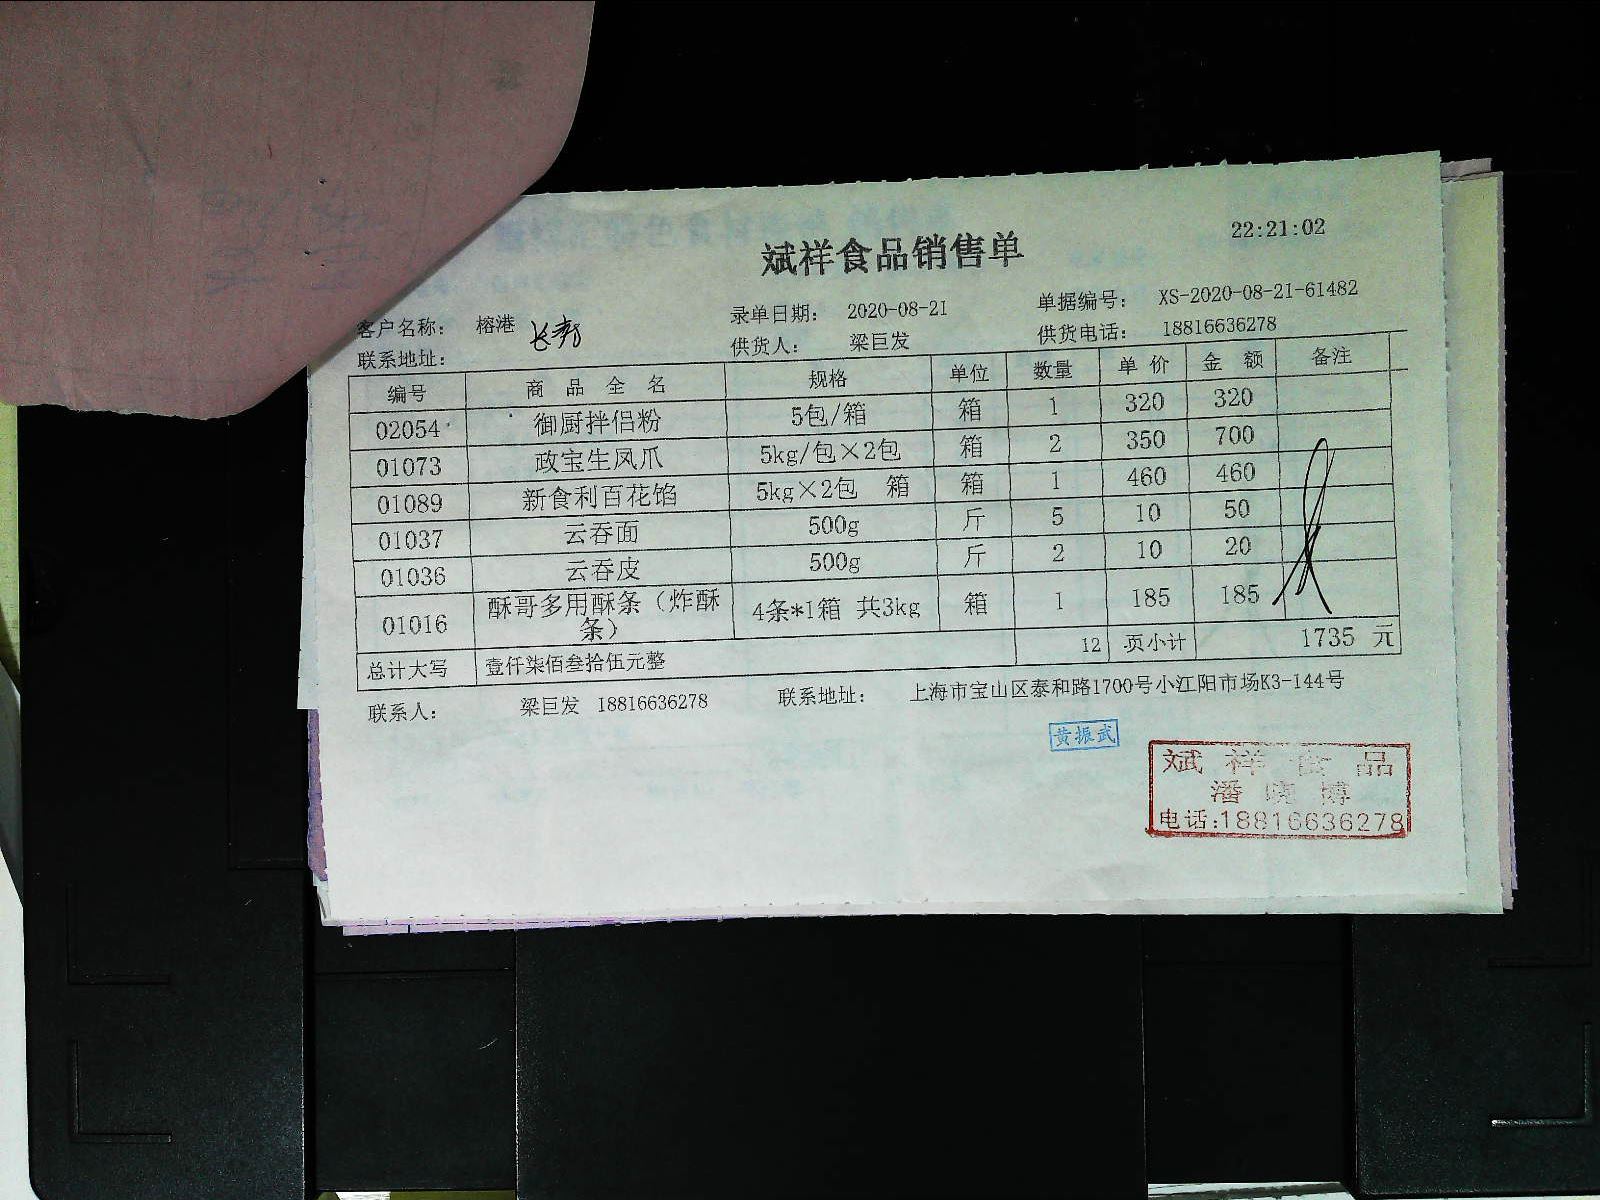 22:21:02
斌祥食品销售单
客户名称： 榕港 录单日期： 2020-08-21 单据编号： XS-2020-08-21-61482
联系地址： 供货人： 梁巨发 供货电话： 18816636278
编号 商品全名 规格 单位 数量 单价 金额 备注
02054 御厨拌侣粉 5包/箱 箱 1 320 320
01073 政宝生凤爪 5kg/包×2包 箱 2 350 700
01089 新食利百花馅 5kg×2包 箱 箱 1 460 460
01037 云吞面 500g 斤 5 10 50
01036 云吞皮 500g 斤 2 10 20
01016 酥哥多用酥条（炸酥条） 4条*1箱 共3kg 箱 1 185 185
总计大写 壹仟柒佰叁拾伍元整 12 页小计 1735 元
联系人： 梁巨发 18816636278 联系地址： 上海市宝山区泰和路1700号小江阳市场K3-144号
黄振武
斌祥食品
潘晓博
电话:18816636278